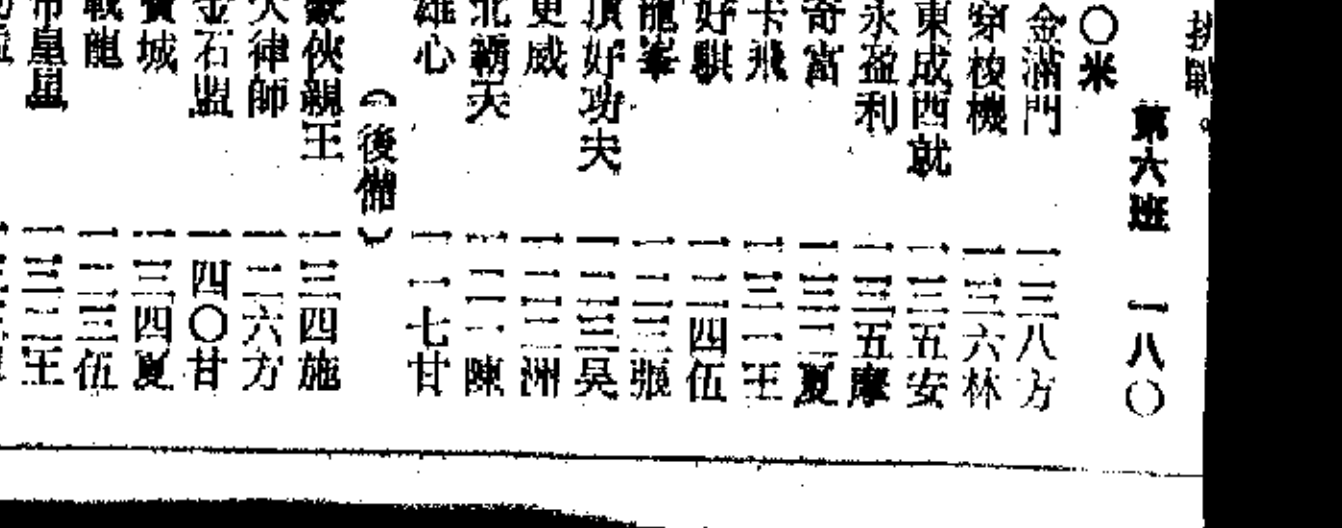 挑戰。
第六班 一八〇
〇米
金滿門 一三八方
穿梭機 一三六林
東成西就 一三五安
永盈利 一三五摩
奇富 一三二夏
卡飛 一三一王
好騏 一二四伍
龍峯 一二三張
頂好功夫 一二三吳
更威 一二三洲
北霸天 一二一陳
雄心 一一七甘
（後備）
豪俠親王 一三四施
大律師 一二六方
金石盟 一四〇甘
寶城 一三四夏
戰龍 一二三伍
皇星 一三二王